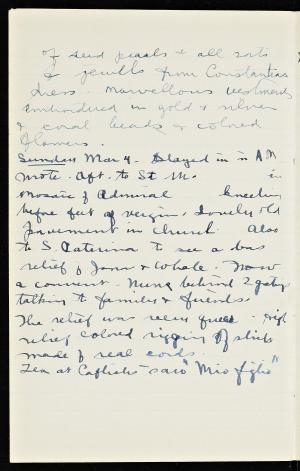 of seed pearls & all sorts
of jewels from Constantine's
dress. Marvellous vestments
embroidered in gold & silver
& coral beads & colored
flowers.
Sunday Mar 4. Stayed in in A.M
wrote. Aft. to St M. in
mosaic of Admiral kneeling
before feet of virgin. Lovely old
pavement in church. Also
to S. Caterina to see a bas
relief of Jona & Whale. Now
a convent. Nuns behind 2 gates
talking to families & friends.
The relief was very - High
relief colored rigging of ships
made of real cords.
Tea at saw "Mio figlio"